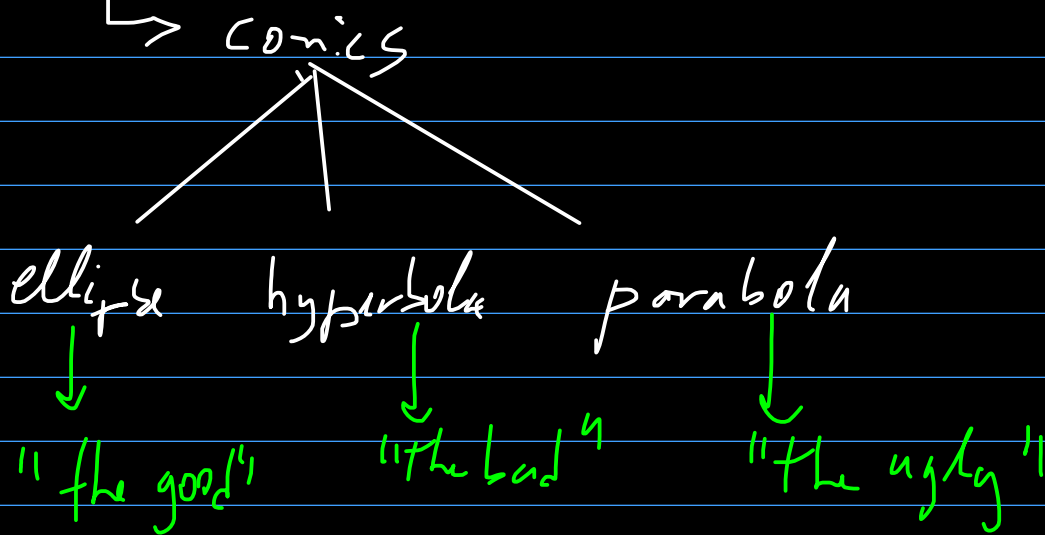 conics
ellipse hyperbola parabola
"the good" "the bad" "the ugly"